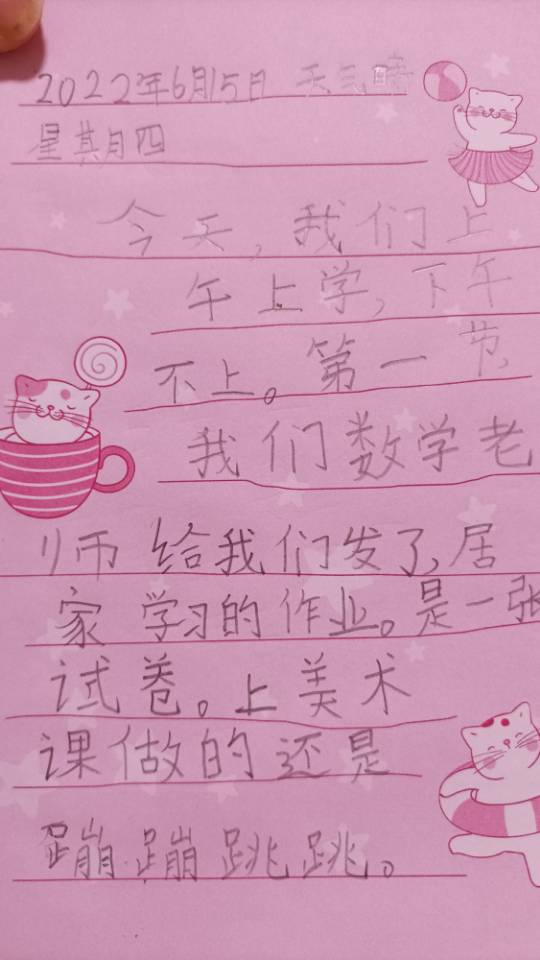 2022年6月15日 天气晴
星其月四
今天,我们上
午上学,下午
不上。第一节
我们数学老
师给我们发了,居
家学习的作业。是一张
试卷。上美术
课做的还是
蹦蹦跳跳。